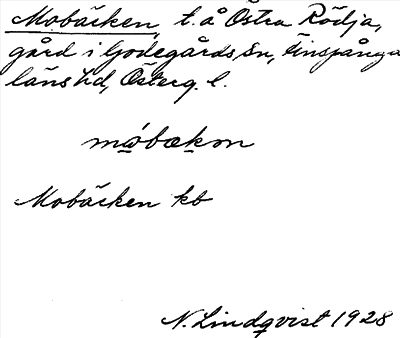 Mobäcken, t. å Östra Rödja,
gård i Godegårds sn, Finspånga
läns hd, Österg. l.
mǫ́bækon
Mobäcken kb
N. Lindqvist 1928